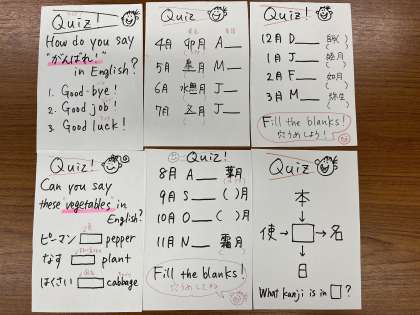 Quiz!
How do you say
"がんばれ!"
in English?
1. Good-bye!
2. Good job!
3. Good luck!
Quiz
4月 卯月 A
5月 月 M
6月 水無月 J
7月 文月 J
Quiz!
12月 D 師走
1月 J 睦月
2月 F 如月
3月 M 弥生
Fill the blanks!
穴うめしよう!
Quiz!
Can you say
these "vegetables" in
English?
ピーマン pepper
なす plant
はくさい cabbage
Quiz!
8月 A 葉月
9月 S ( )月
10月 O ( )月
11月 N 霜月
Fill the blanks!
穴うめしてね
Quiz
本
使 → □ → 名
日
What kanji is in □?